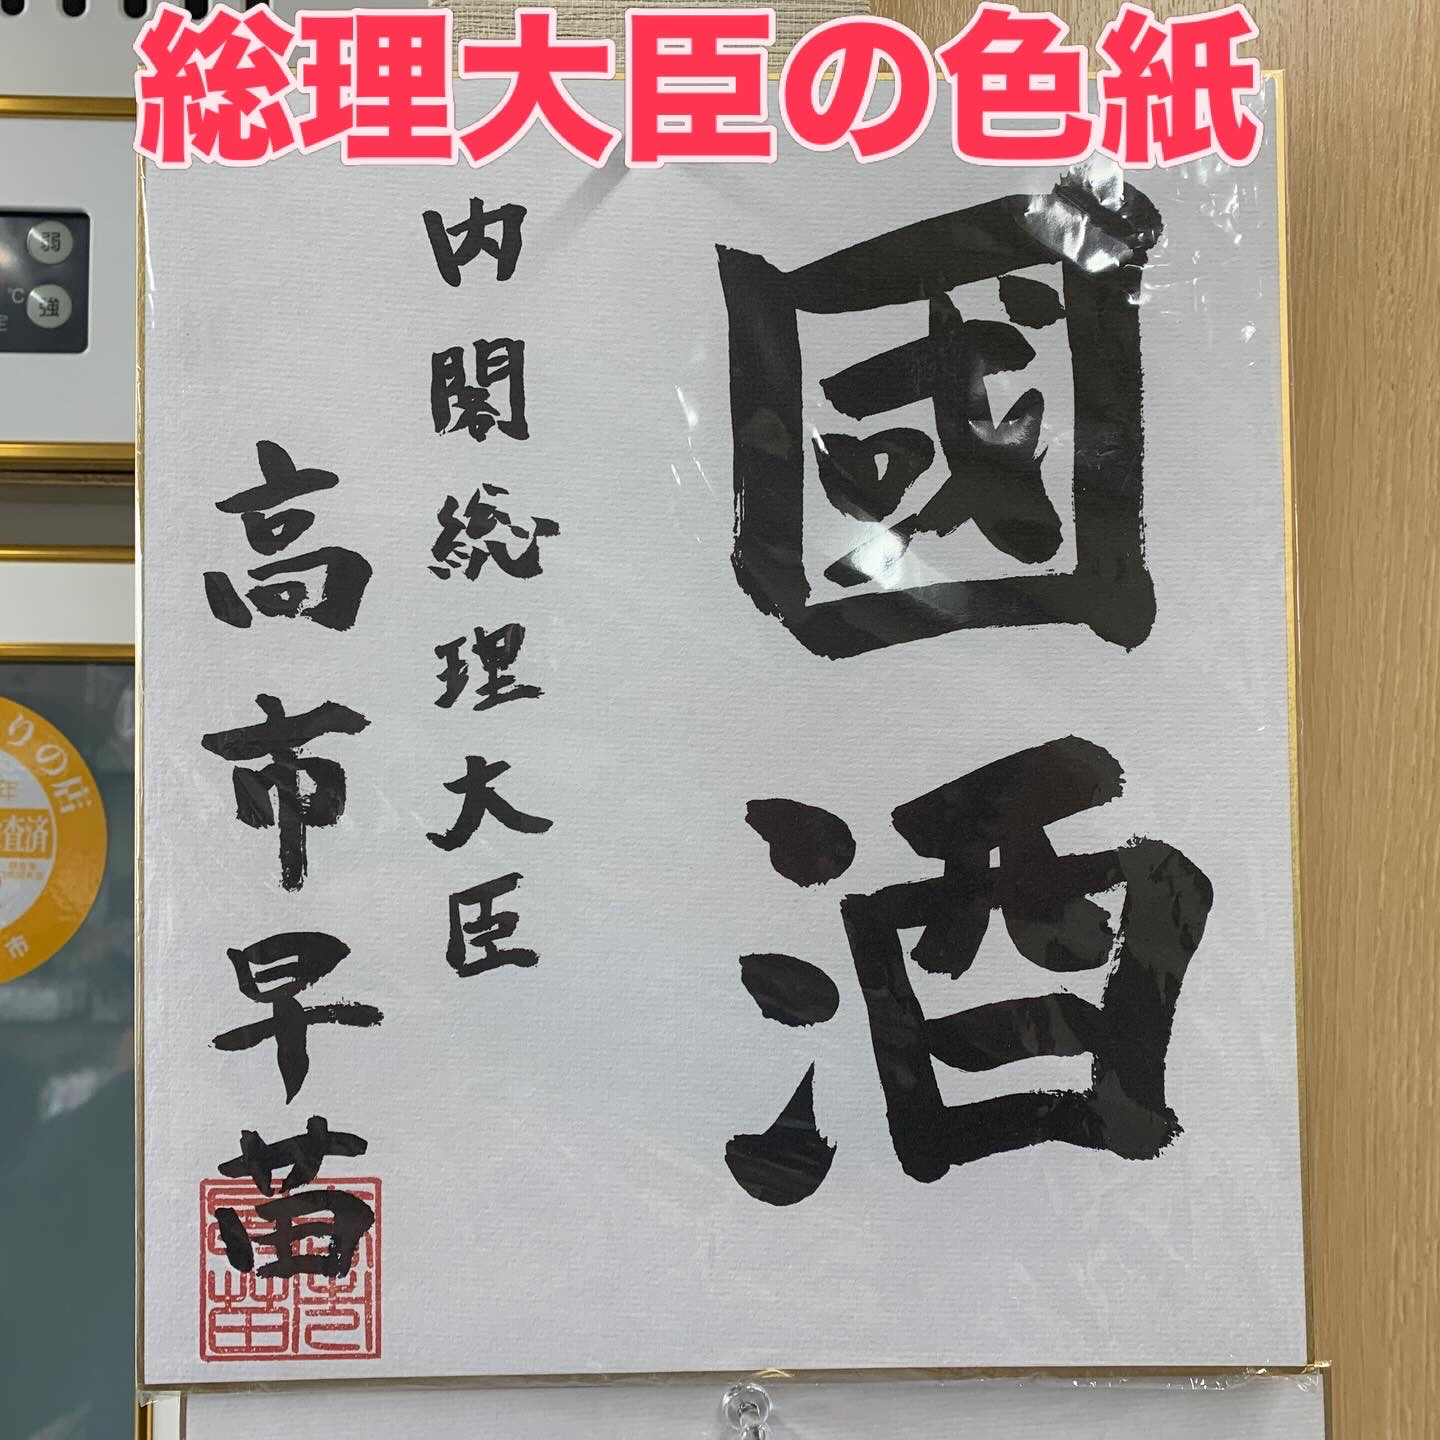 総理大臣の色紙
國酒
内閣総理大臣
高市早苗
弱
℃
強
りの店
年
査済
市